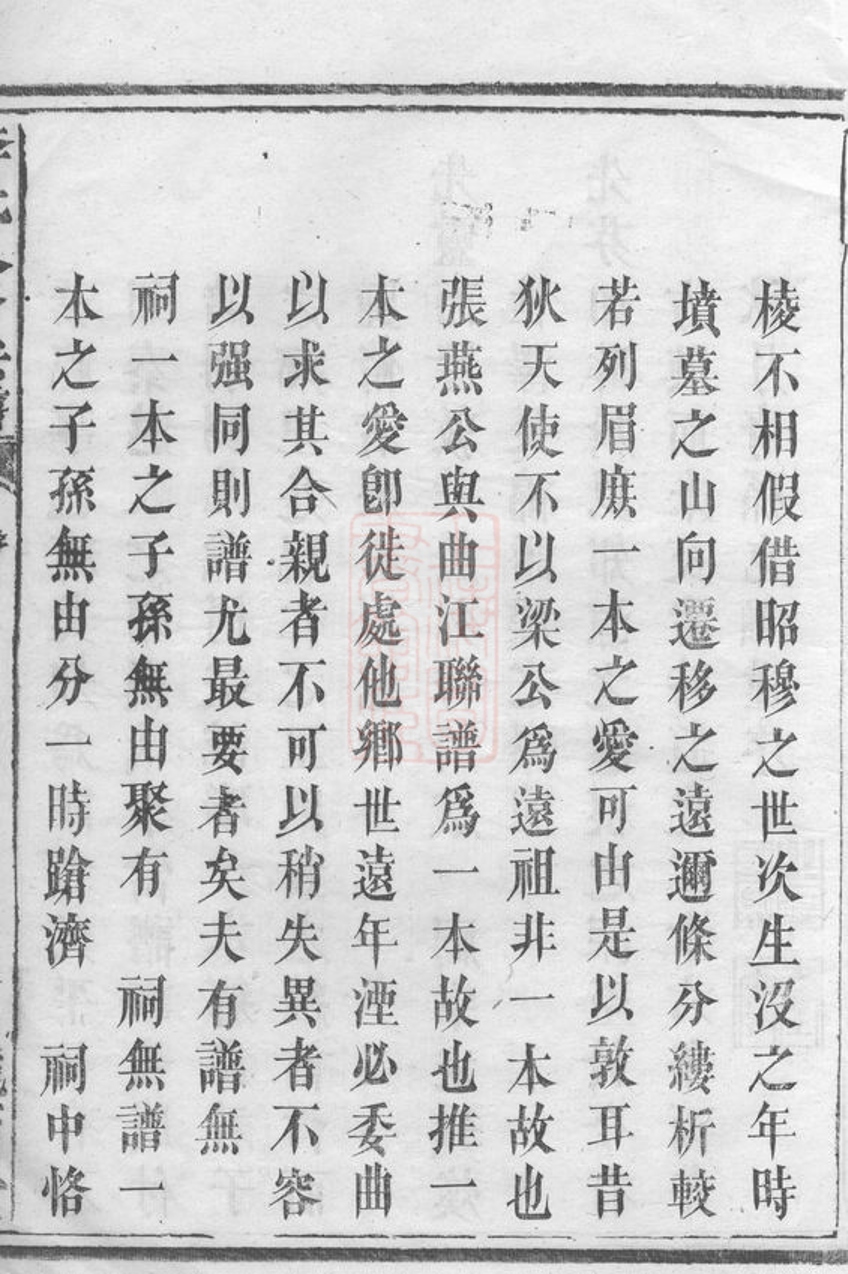 稜不相假借昭穆之世次生沒之年時
墳墓之山向遷移之遠邇條分縷析較
若列眉庶一本之愛可由是以敦耳昔
狄天使不以梁公爲遠祖非一本故也
張燕公與曲江聯譜爲一本故也推一
本之愛卽徙處他鄉世遠年湮必委曲
以求其合親者不可以稍失異者不容
以强同則譜尤最要者矣夫有譜無
祠一本之子孫無由聚有　祠無譜一
本之子孫無由分一時蹌濟　祠中恪